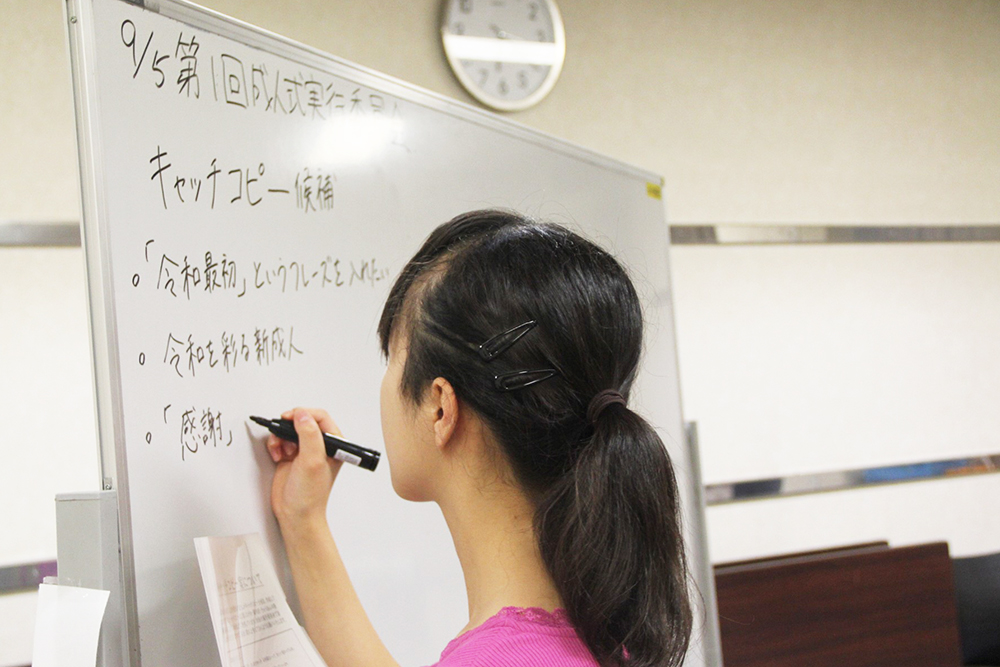 9/5 第1回成人式実行委員会
キャッチコピー候補
○「令和最初」というフレーズを入れたい
○ 令和を彩る新成人
○「感謝」